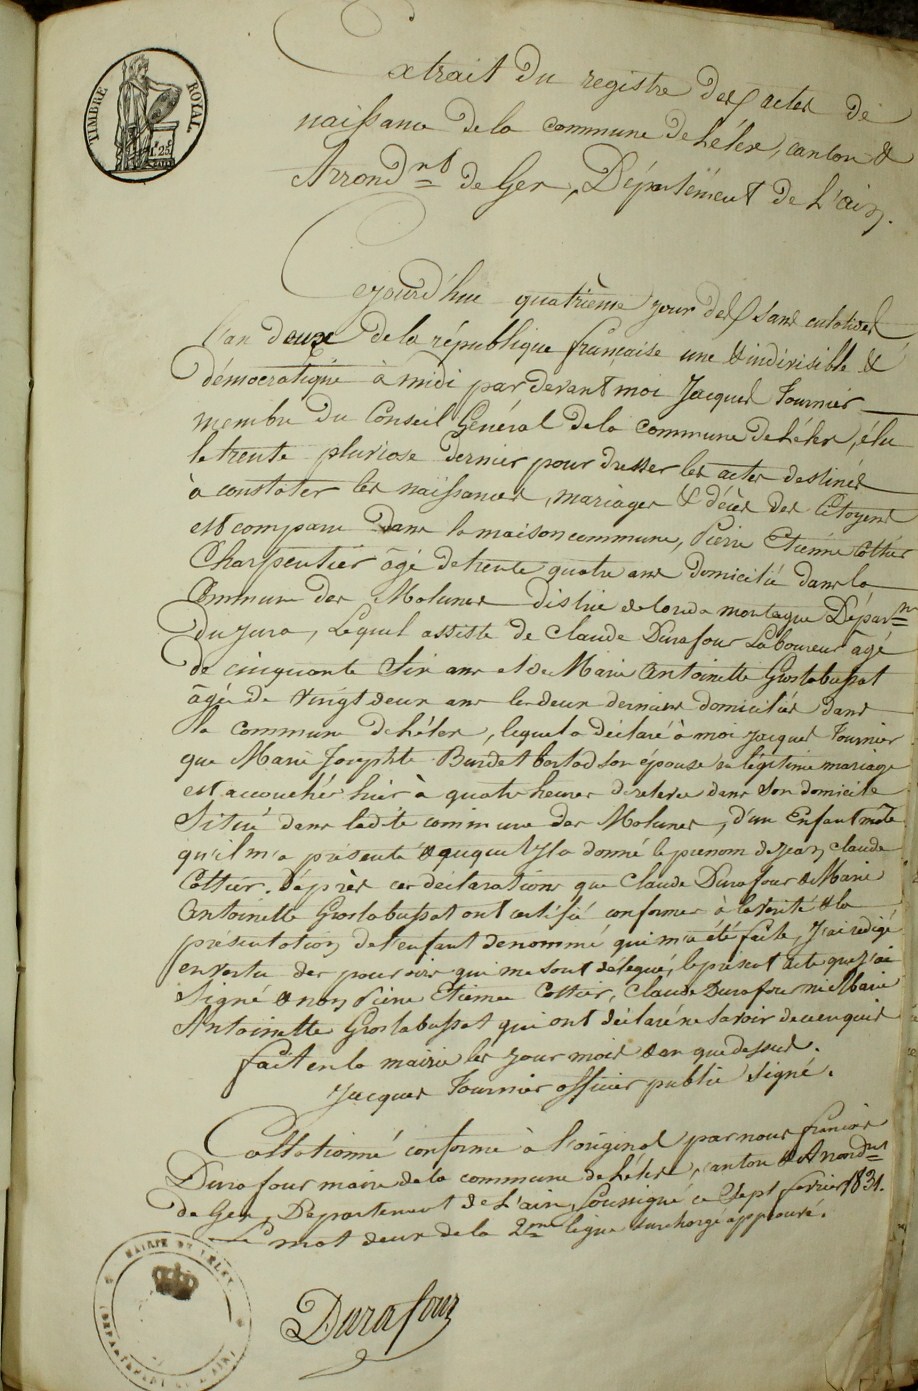 TIMBRE ROYAL
1f 25c
Extrait du registre des actes de
naissance de la commune de Lélex, canton &
Arrond.nt de Gex, Département de L'ain.
Cejourd'hui quatrième jour des sans culotides
l'an deux de la république francaise une & indivisible &
démocratique à midi pardevant moi Jacques Fournier
membre du Conseil Général de la commune de Lélex, élu
le trente pluviose dernier pour dresser les actes destinés
à constater les naissances, mariages & décès des Citoyens
est comparu dans la maison commune, Pierre Etienne Cottier
Charpentier âgé de trente quatre ans domicilié dans la
Commune des Molunes district de montagne Départ.nt
Du Jura, Lequel assisté de Claude Durafour Laboureur âgé
de cinquante Six ans et de Marie Antoinette Groslabussat
âgée de vingt deux ans les deux derniers domiciliés dans
la commune de Lélex, lequel a déclaré à moi Jacques Fournier
que Marie Josephte son épouse en légitime mariage
est accouchée hier à quatre heures de relevée dans son domicile
Situé dans ladite commune des Molunes, d'un Enfant mâle
qu'il m'a présenté & auquel il a donné le prenom de Jean Claude
Cottier. D'après ces déclarations que Claude Durafour & Marie
Antoinette Groslabussat ont certifié conformes à la vérité & la
présentation de l'enfant denommé qui m'a été faite, J'ai rédigé
en vertu des pouvoirs qui me sont délegués, le présent acte que j'ai
Signé & non Pierre Etienne Cottier, Claude Durafour ni Marie
Antoinette Groslabussat qui ont déclaré ne savoir de ce enquis
fait en la mairie les jour mois & an que dessus.
Jacques Fournier officier public signé.
Collationné conforme à l'original par nous francois
Durafour maire de la commune de Lélex, canton & Arrond.nt
de Gex, Département de L'ain, Soussigné ce Sept fevrier 1831.
Le mot deux de la 2me ligne surchargé approuvé.
MAIRIE DE LELEX
DEPARTEMENT DE L'AIN
Durafour